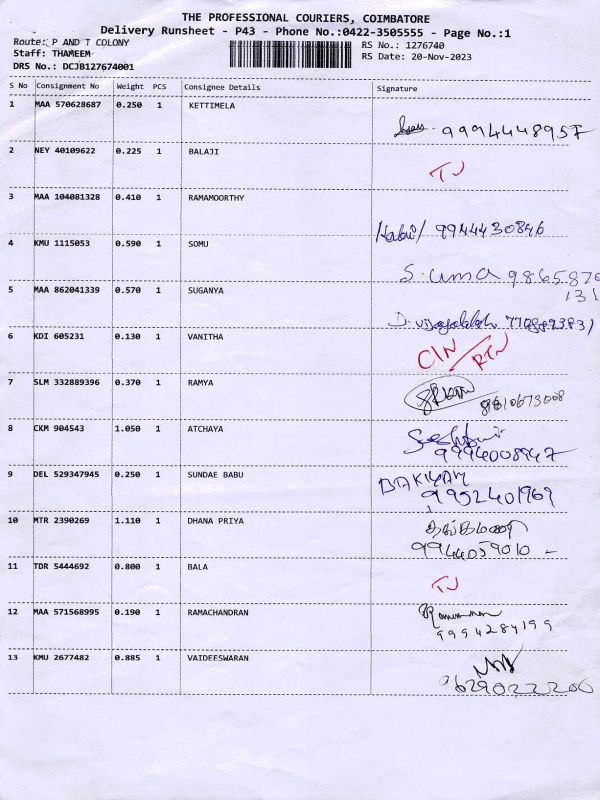 THE PROFESSIONAL COURIERS, COIMBATORE
Delivery Runsheet - P43 - Phone No.:0422-3505555 - Page No.:1
Route: P AND T COLONY
RS No.: 1276740
Staff: THAMEEM
RS Date: 20-Nov-2023
DRS No.: DCJB127674001
S No Consignment No Weight PCS Consignee Details Signature
1 MAA 570628687 0.250 1 KETTIMELA
9994448957
2 NEY 40109622 0.225 1 BALAJI
TJ
3 MAA 104081328 0.410 1 RAMAMOORTHY
9944430846
4 KMU 1115053 0.590 1 SOMU
S. uma 9865876
131
5 MAA 862041339 0.570 1 SUGANYA
6 KDI 605231 0.130 1 VANITHA
CIN/RTN
7 SLM 332889396 0.370 1 RAMYA
8 CKM 904543 1.050 1 ATCHAYA
9994008947
9 DEL 529347945 0.250 1 SUNDAE BABU
BAKIYAM
9952401969
10 MTR 2390269 1.110 1 DHANA PRIYA
9944059010 -
11 TDR 5444692 0.800 1 BALA
TJ
12 MAA 571568995 0.190 1 RAMACHANDRAN
9994284199
13 KMU 2677482 0.885 1 VAIDEESWARAN
9629022200